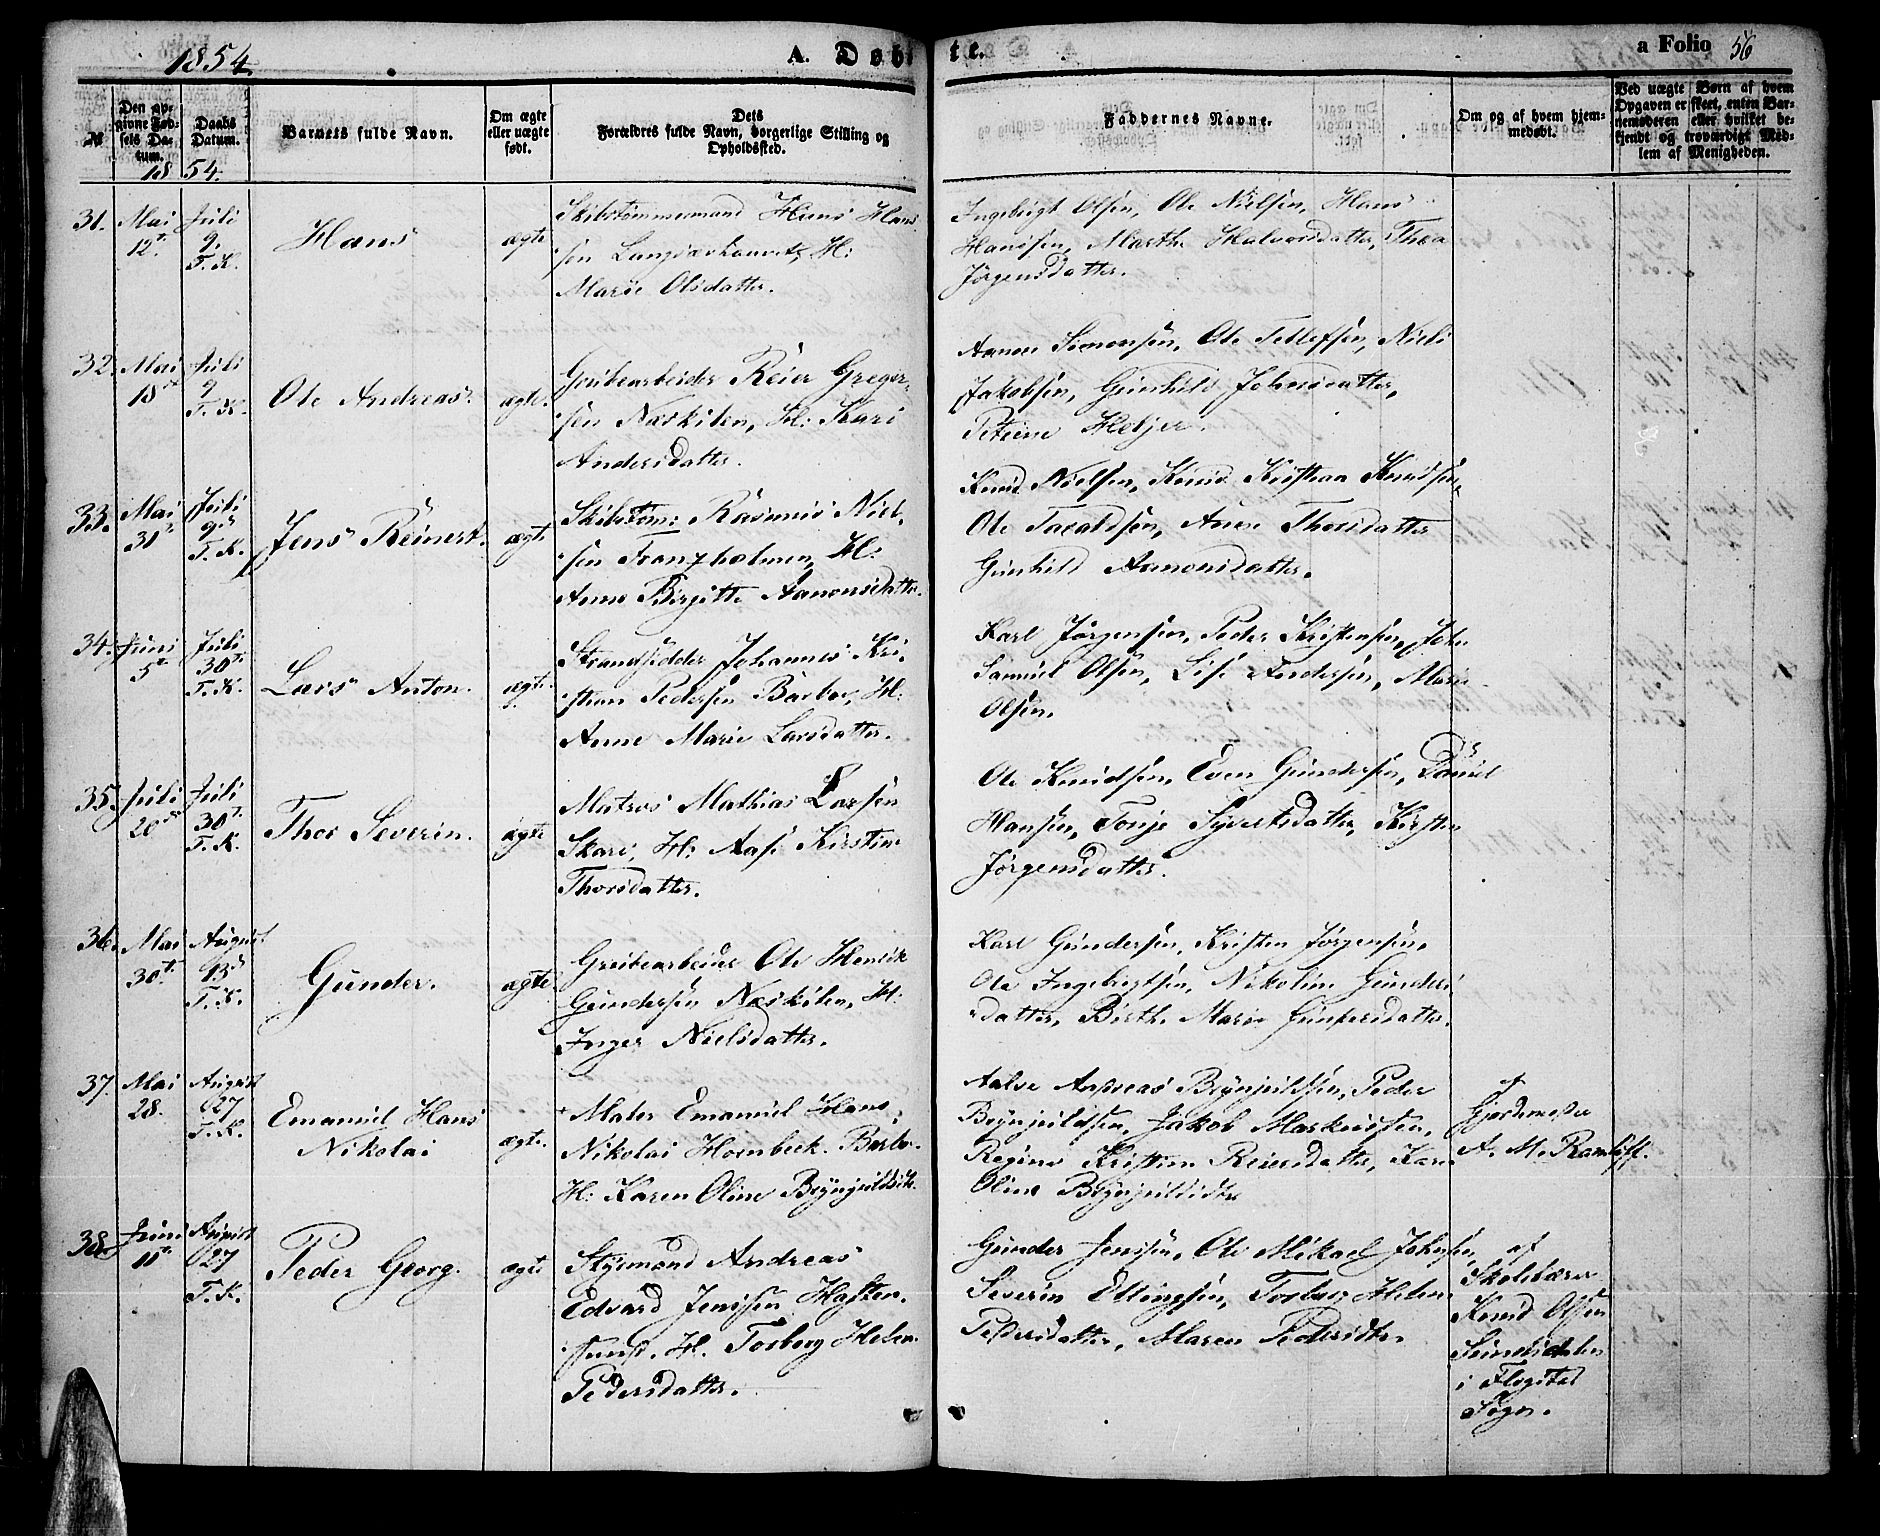 1854.
A. Døbte.
a Folio 56
№
Den opgivne Fødsels Datum.
Daabs Datum.
Barnets fulde Navn.
Om ægte eller uægte født.
Dets Forældres fulde Navn, borgerlige Stilling og Opholdssted.
Faddernes Navne.
Om og af hvem hjemmedøbt.
Ved uægte Børn af hvem Opgaven er skeet, enten Barnemoderen eller hvilket bekjendt og troværdigt Medlem af Menigheden.
1854.
31. Mai 12t. Juli 9. T. K. Hans ægte
Skibstømmermand Hans Han-
sen H:
Marie Olsdatter.
Ingebrigt Olsen, Ole Nielsen, Hans
Hanssen, Marthe Halvorsdatter, Thea
Jørgensdatter.
32. Mai 15 Juli 9 T. K. Ole Andreas. ægte.
Grubearbeider Reier Greger-
sen Næskilen, H: Kari
Andersdatter.
Aanon Simonsen, Ole Tellefsen, Niels
Jakobsen, Gunhild Johnsdatter,
Petrine
33. Mai 31t Juli 9d T. K. Jens Reinert. ægte
Skibstøm: Rasmus Niel-
sen Trangholmen, H:
Anne Birgitte Aanonsdatter
Knud Nielsen, Knud Knudsen,
Ole Taraldsen, Anne Thorsdatter
Gunhild Aanonsdatter.
34. Juni 5t Juli 30t. T. K. Lars Anton. ægte.
Strandsidder Johannes Kri-
stian Pedersen Barbo, H:
Anne Marie Larsdatter.
Karl Jørgensen, Peder Kristensen, John
Samuel Olsen, Lise Andersen, Marie
Olsen.
35. Juli 20de Juli 30t. T. K. Thor Severin. ægte
Matros Mathias Larsen
Skare, H: Aase Kirstine
Thorsdatter.
Ole Knudsen, Even Gundersen, Daniel
Hansen, Tonje Syvertsdatter, Kirsten
Jørgensdatter.
36. Mai 30t. August 13d T. K. Gunder. ægte
Grubearbeider Ole Henrik
Gundersen Næskilen, H:
Inger Nielsdatter.
Karl Gundersen, Kristen Jørgensen,
Ole Ingebrigtsen, Nikoline Gunders-
datter, Birthe Marie
37. Mai 28. August 27 T. K. Emanuel Hans
Nikolai ægte.
Maler Emanuel Hans
Nikolai Hornbeck. Barbo.
H: Karen Oline Brynjulfsdtr.
Aalve Andreas Brynjulfsen, Peder
Brynjulfsen, Jakob Markussen,
Regine Kristine Reiersdatter, Karen
Oline Brynjulfsdtr
af
Gjordemoder
A. M.
38. Juni 11t. August 27 T. K. Peder Georg. ægte
Styrmand Andreas
Edvard Jenssen Hasten-
sund, H. Torborg Helene
Pedersdatter.
Gunder Jensen, Ole Mikael Johnsen,
Severin Ellingsen, Torborg Helene
Pedersdatter, Maren Pedersdtr.
af
Skolelærer
Knud Olsen
i Flosta
Sogn.